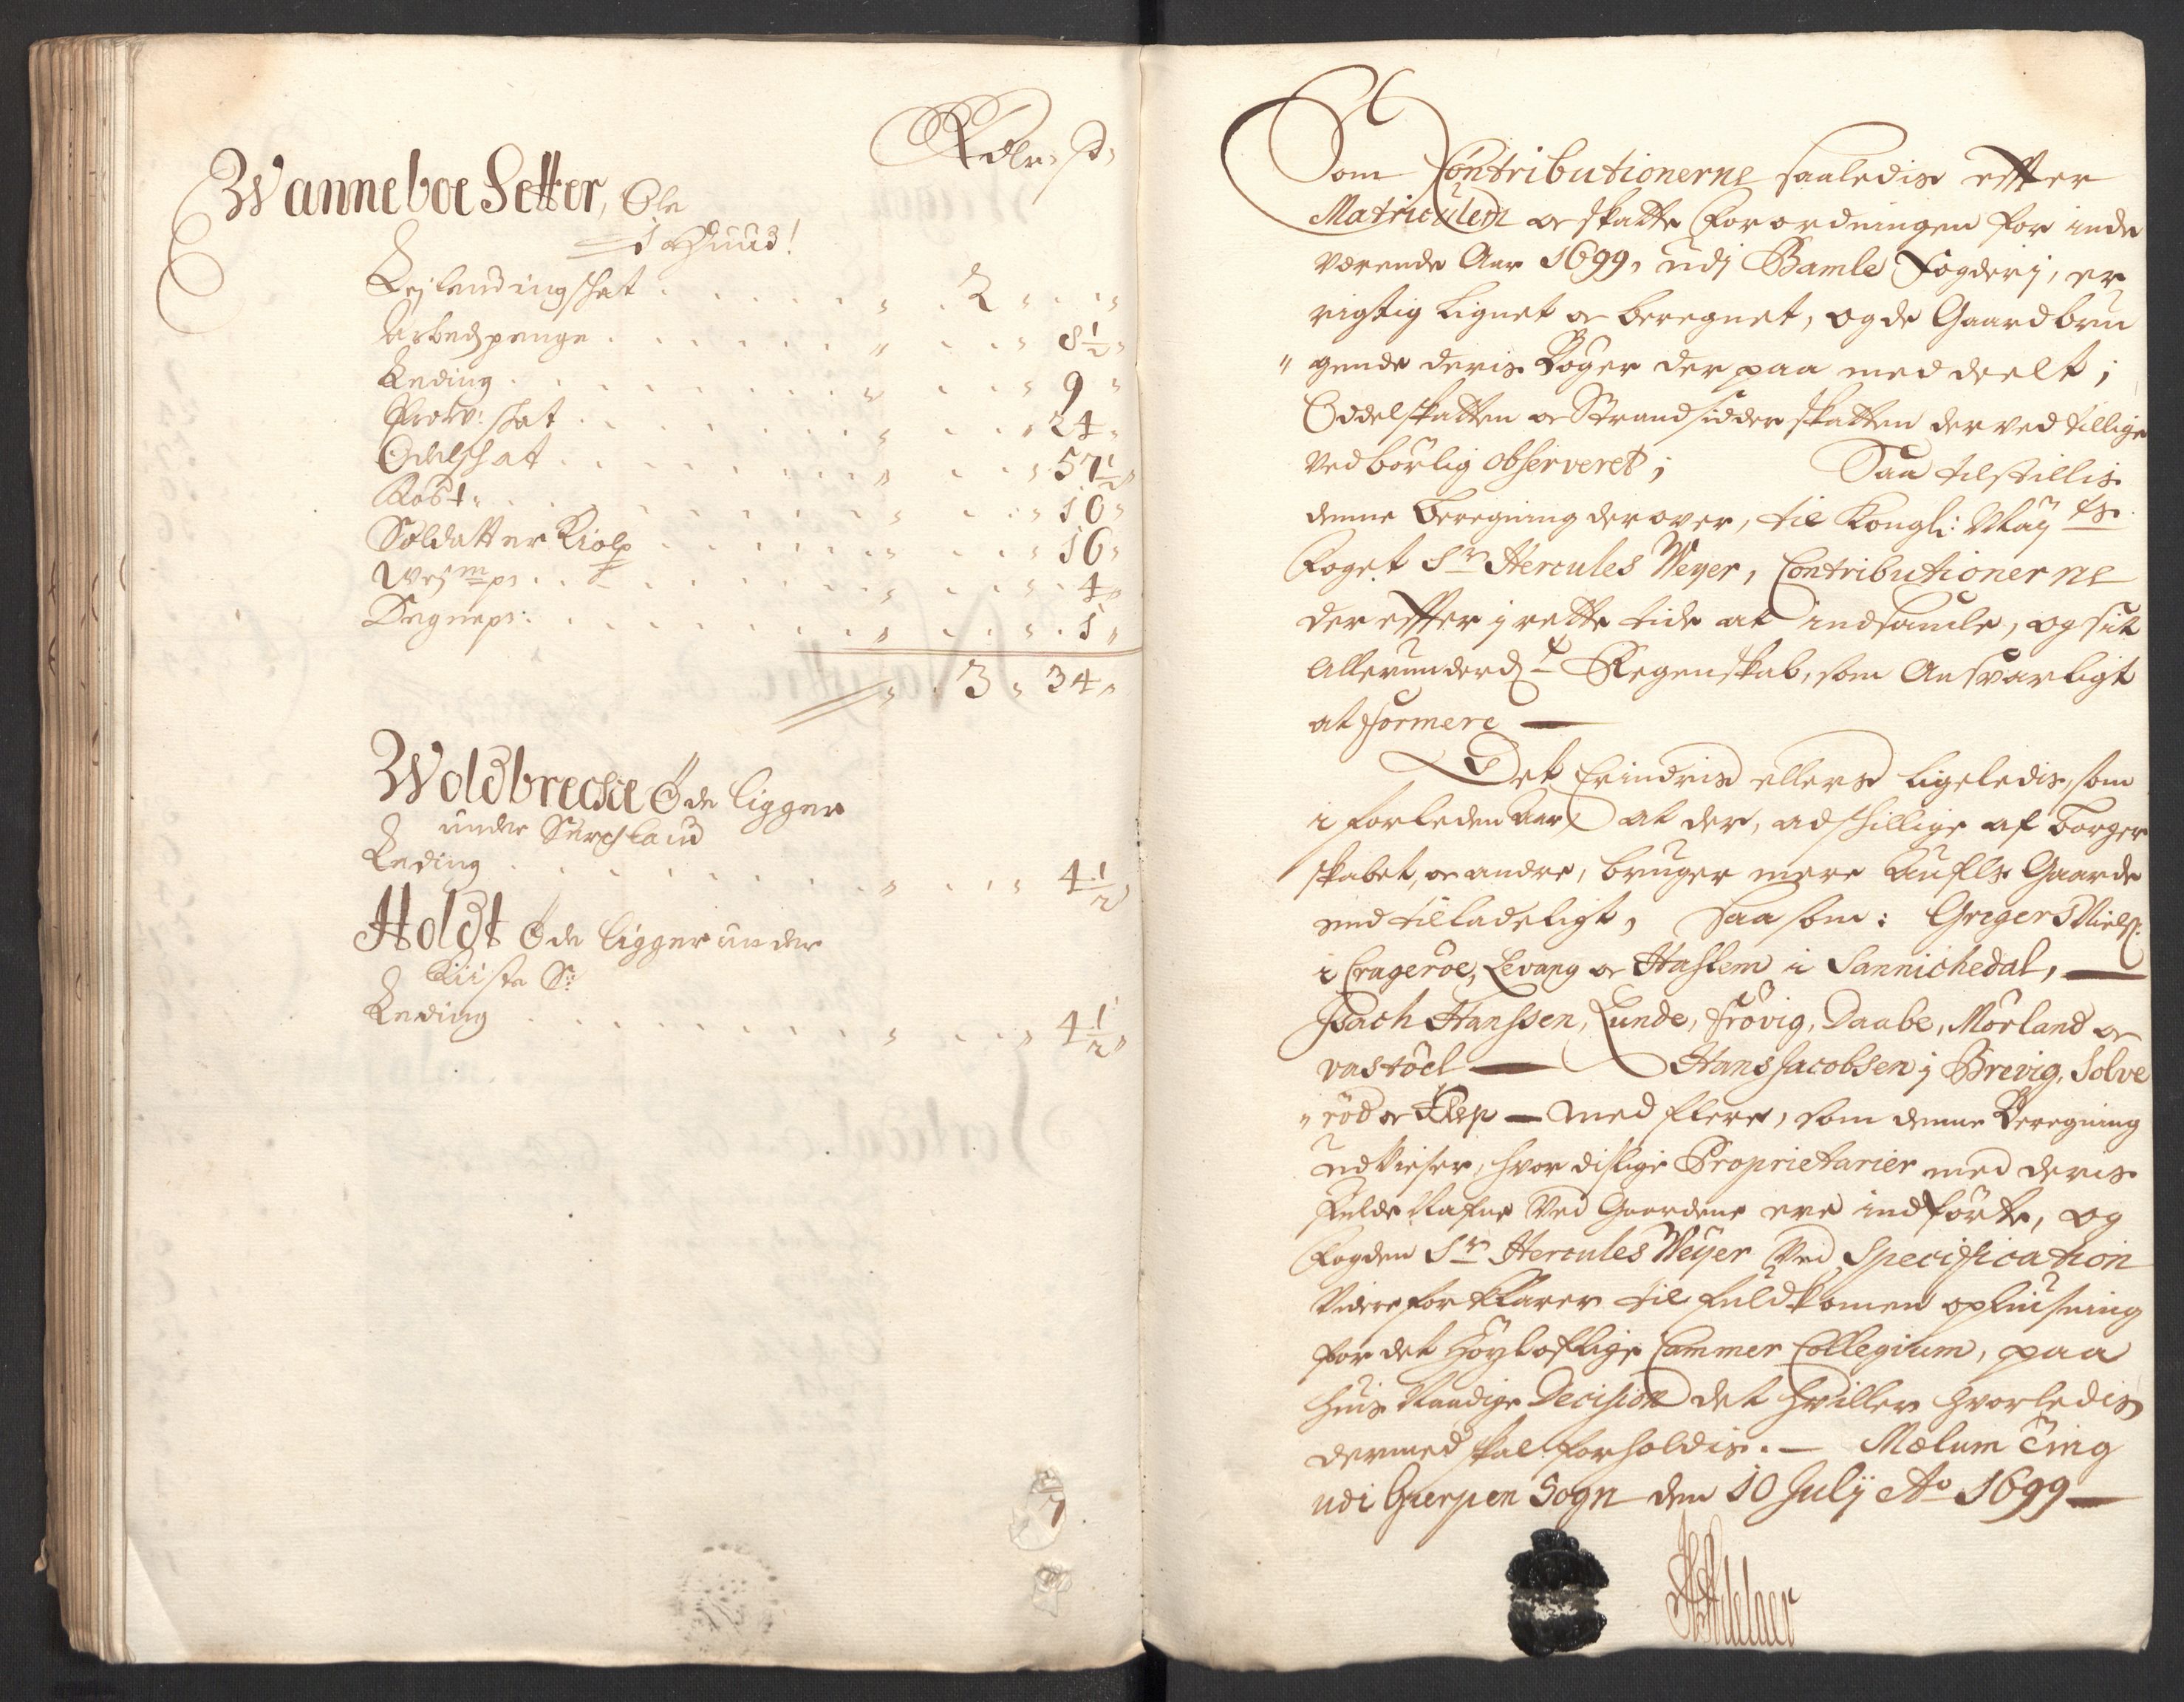 Rdlr. ß.
Wanneboe Setter, Ole
1 Huud!
Leÿlendingschat . . . 2 . .
Arbedzpenge . . . 8½
Leding . . . 9
Prov: schat . . . 24
Odelschat . . . 57½
Rost: . . . 10
Soldatter Hiolp . . . 16
. . . 4
Degnep: . . . 1
3 34
Woldbrecke Øde ligger
under
Leding . . . 4½
Holdt Øde ligger under
Leding . . . 4½
7
Som Contributionerne saaledis effter
Matriculen oc skatte Forordningen for inde
værende Aar 1699, udj Bamle Fogderj, er
rigtig Lignet oc beregnet, og de Gaardbru
" gende deris Bøger der paa meddeelt;
Oddelskatten oc Strandsidder skatten derved tillige
vedbørlig observeret; Saa tilstillis
denne beregning derover, til Kongl: Maÿ ts.
Foget Sr Hercules Weyer, Contributionerne
der effter j rette tide at indsamle, og sit
Allerunderd: Regenskab, som Ansvarligt
at formere —
Det Erindris ellers ligeledis, som
i forleden Aar, at der, adskillige af borger
skabet, oc andre, bruger mere Gaarde
end tilladeligt, Saasom: Greger Nielß:
i Crageröe, Levang oc Haslem i Sannichedal, —
Isach Hanssen, Lunde, Frövig, Daabe, Mörland oc
vastöel — Hans Jacobsen j Brevig, Solve
" röd oc Klep — med flere, som denne Beregning
udviser, hvor dislige Proprietarier med deris
fulde Nafne ved Gaardene ere indförte, og
Fogden Sr Hercules Weyer ved Specification
videre forklarer til fuldkomen opliusning
for det Höyloflige Cammer Collegium, paa
huis Naadige Decision det hviller hvorledis
dermed skal forholdis. — Mælum Ting
udi Gierpen Sogn den 10 Julÿ Ao 1699 —
Adelaer